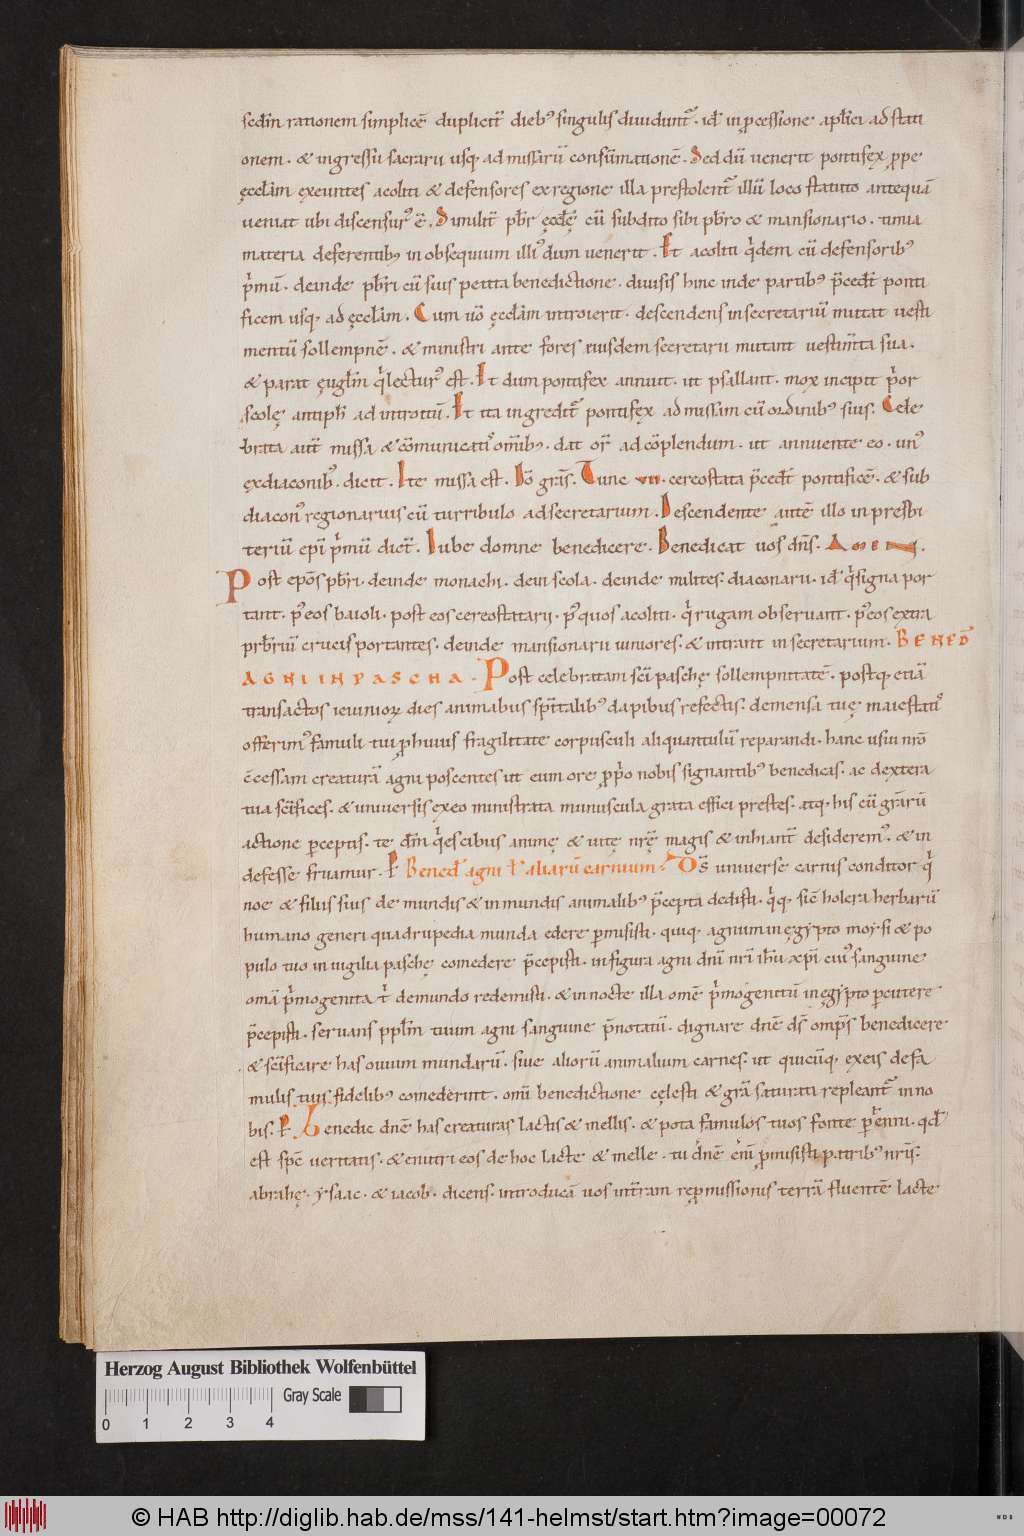 sedm̄ rationem simplicē duplicit̄ diebꝰ singulis diuidunt᷑. id ē in ꝓcessione apłici ad stati
onem. & ingressu sacrarii usq; ad missarū consūmationē. Sed dū uenerit pontifex ꝓpe
ęcclam̄ exeuntes acoliti & defensores ex regione illa prestolent᷑ illū loco statuto antequā
ueniat ubi discensurꝰ ē. Similit̄ pbr̄ ęccłę cū subdito sibi pbr̄o & mansionario. timia
materia deferentibꝰ in obsequium illiꝰ dum uenerit. Et acoliti qidem cū defensoribꝰ
p̄mū. deinde pbr̄i cū suis petita benedictione. diuisis hinc inde partibꝰ p̄cedt̄ ponti
ficem usq; ad ęcclam̄. Cum uō ęcclam̄ introierit. descendens in secretariū mutat uesti
mentū sollempnē. & ministri ante fores eiusdem secretarii mutant uestim̄ta sua.
& parat ęuglm̄ q lecturꝰ est. Et dum pontifex annuit. ut psallant. mox incipit p̄or
scolę antiph̄ ad introitū. Et ita ingredit᷑ pontifex ad missam cū ordinibꝰ suis. Cele
brata aut̄ missa & cōmunicatiꝰ om̄ibꝰ. dat or̄ ad cōplendum. ut annuente eo. unꝰ
ex diaconibꝰ. dicit. Ite missa est. Do gras̄. Tunc vii. cereostata p̄cedt̄ pontificē. & sub
diaconꝰ regionarius cū turribulo ad secretarium. Descendente antē illo in presbi
teriū epī p̄mū dict̄. Iube domne benedicere. Benedicat uos dn̄s. AMEN.
Post epōs pbr̄i. deinde monachi. dein scola. deinde milites. diaconarii. id ē q signa por
tant. pꝰ eos baioli. post eos cereostatarii. pꝰ quos acoliti. q rugam obseruant. pꝰ eos extra
prb̄riū crucis portantes. deinde mansionarii iuniores. & intrant in secretarium. BENED̄
AGNI IN PASCHA. Post celebratam scī paschę sollempnitatē. postq; etiā
transactos ieiunioꝝ dies animabus spīitalibꝰ dapibus refectis. de mensa tuę maiestatiꝰ
offerimꝰ famuli tui p huius fragilitate corpusculi aliquantulū reparandi. hanc usui nr̄o
c̄cessam creaturā agni poscentes ut eum ore ꝓprio nobis signantibꝰ benedicas. ac dextera
tua scīfices. & uniuersis ex eo ministrata munuscula grata effici prestes. atq; his cū grar̄ū
actione perceptis. te dm̄ qi es cibus animę & uitę nrę̄ magis & inhiant̄ desideremꝰ. & in
defesse fruamur. P Bened̄ agni ł aliarū carnium. Ds̄ uniuerse carnis conditor q
noe & filiis suis de mundis & inmundis animalibꝰ p̄cepta dedisti. qq; sic̄ holera herbarū
humano generi quadrupedia munda edere ꝑmisisti. quiq; agnum in egypto moysi & po
pulo tuo in uigilia paschę comedere p̄cepisti. in figura agni dn̄i nr̄i ihū xpī cuiꝰ sanguine
omā p̄mogenita t de mundo redemisti. & in nocte illa omē p̄mogenitū in egypto ꝑcutere
p̄cepisti. seruans ppłm tuum agni sanguine p̄notatū. dignare dnē ds̄ omps̄ benedicere
& scīficare has ouium mundarū. siue aliorū animalium carnes. ut quicūq; ex eis de fa
mulis tuis fidelibꝰ comederint. omī benedictione celesti & gra saturati repleant᷑ in no
bis. P Benedic dnē has creaturas lactis & mellis. & pota famulos tuos fonte ꝑenni. qd
est spc̄ ueritatis. & enutri eos de hoc lacte & melle. tu dnē eni ꝓmisisti patribꝰ nris̄.
abrahę. ysaac. & iacob. dicens. introducā uos in tr̄am reꝓmissionis terrā fluentē lacte
Herzog August Bibliothek Wolfenbüttel
Gray Scale
0 1 2 3 4
© HAB http://diglib.hab.de/mss/141-helmst/start.htm?image=00072